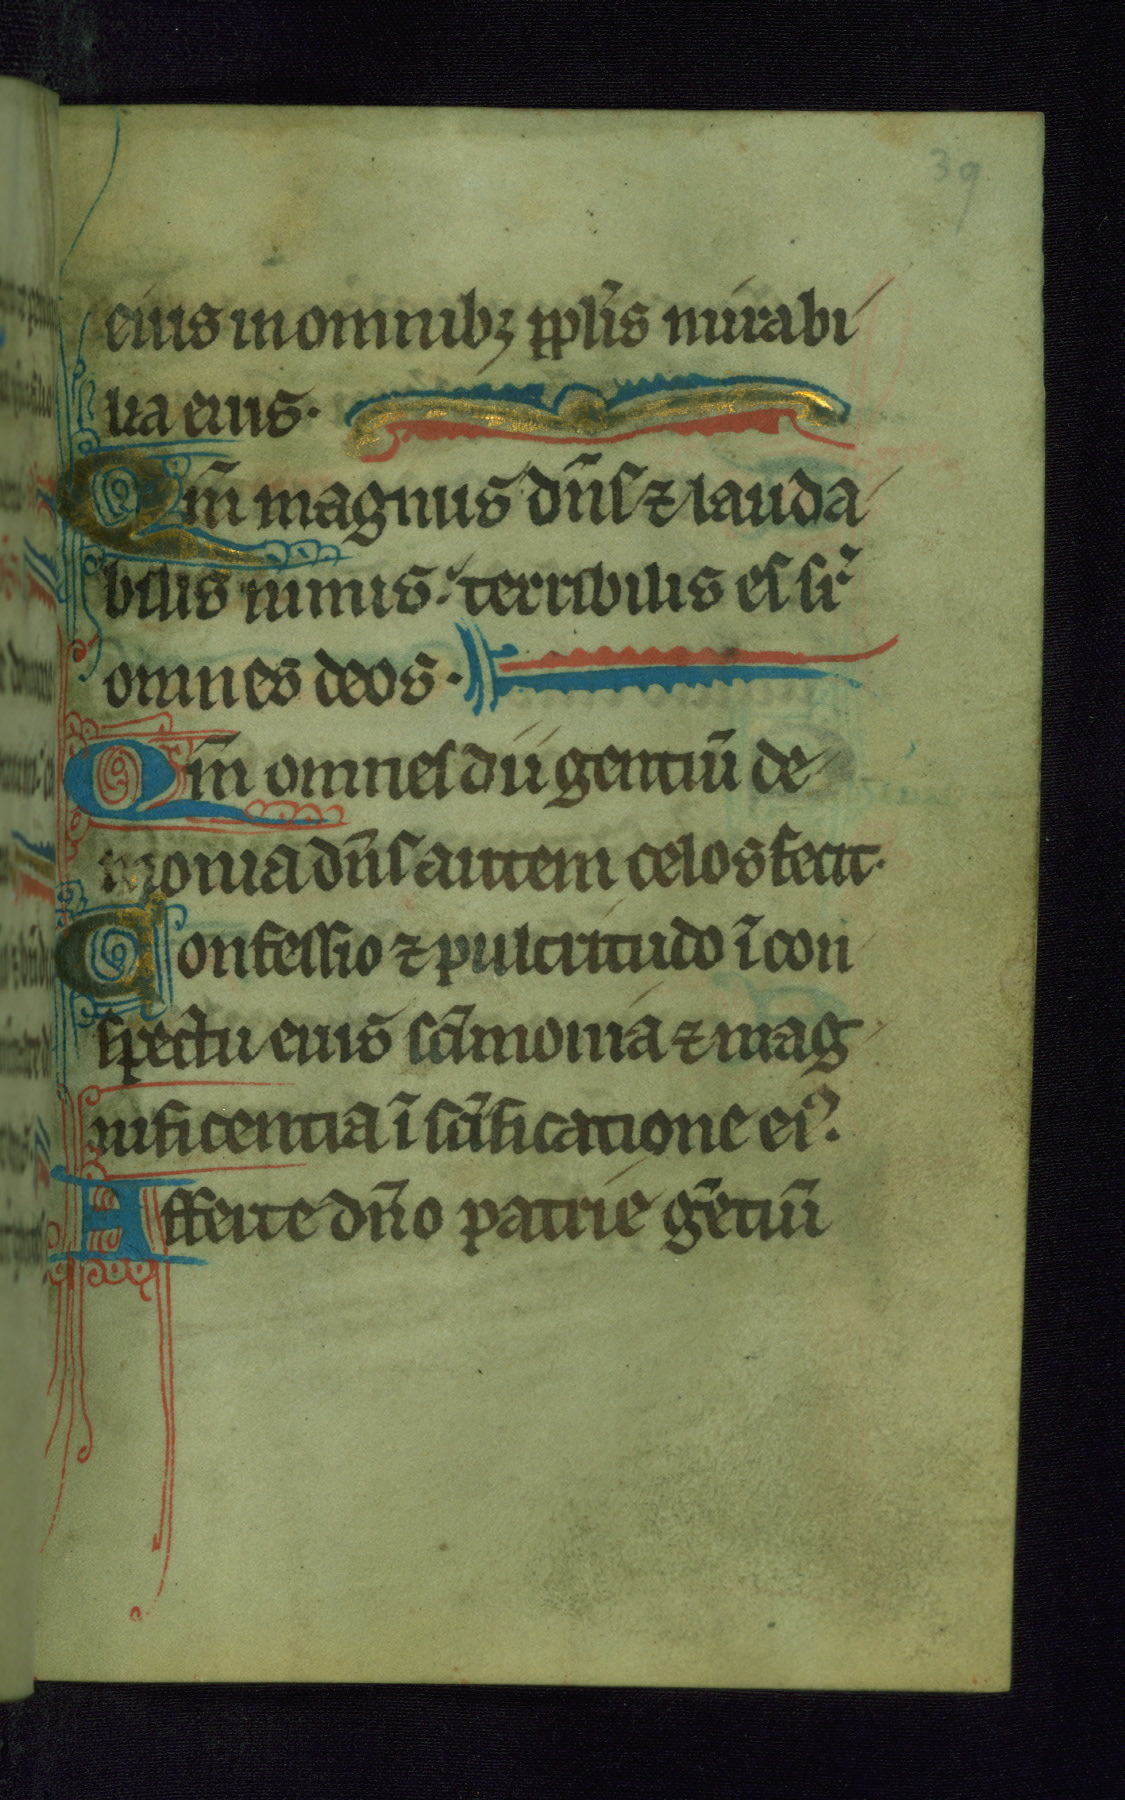 39
eius in omnibꝫ ppl̃is mirabi
lia eius.
Qm̃ magnus dñs ⁊ lauda
bilis nimis: terribilis es sr̃
omnes deos.
Qm̃ omnes dii gentiũ de
monia dñs autem celos fecit.
Confessio ⁊ pulcritudo ĩ con
spectu eius sc̃imonia ⁊ mag
nificentia ĩ sc̃ificatione eiꝰ.
Afferte dño patrie gẽtiũ